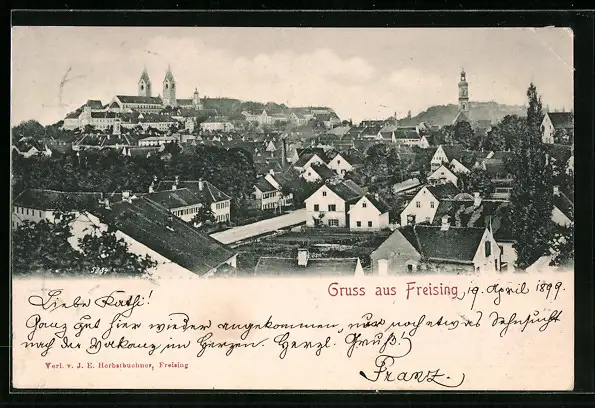 5984
Gruss aus Freising 19. April 1899.
Liebe Kathi!
Ganz gut hier wieder angekommen, nur noch etwas Sehnsucht
nach der Vakanz im Herzen. Herzl. Gruß!
Franz.
Verl. v. J. E. Herbstbuchner, Freising